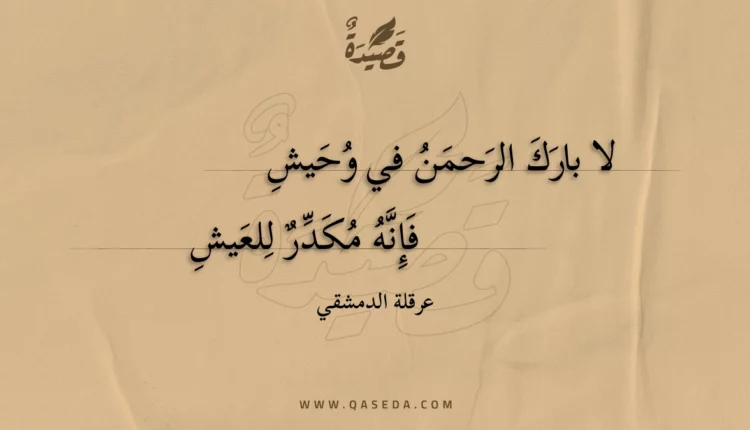 قَصِيدَةٌ
لا بارَكَ الرَحمَنُ في وُحَيشِ
فَإِنَّهُ مُكَدِّرٌ لِلعَيشِ
عرقلة الدمشقي
WWW.QASEDA.COM